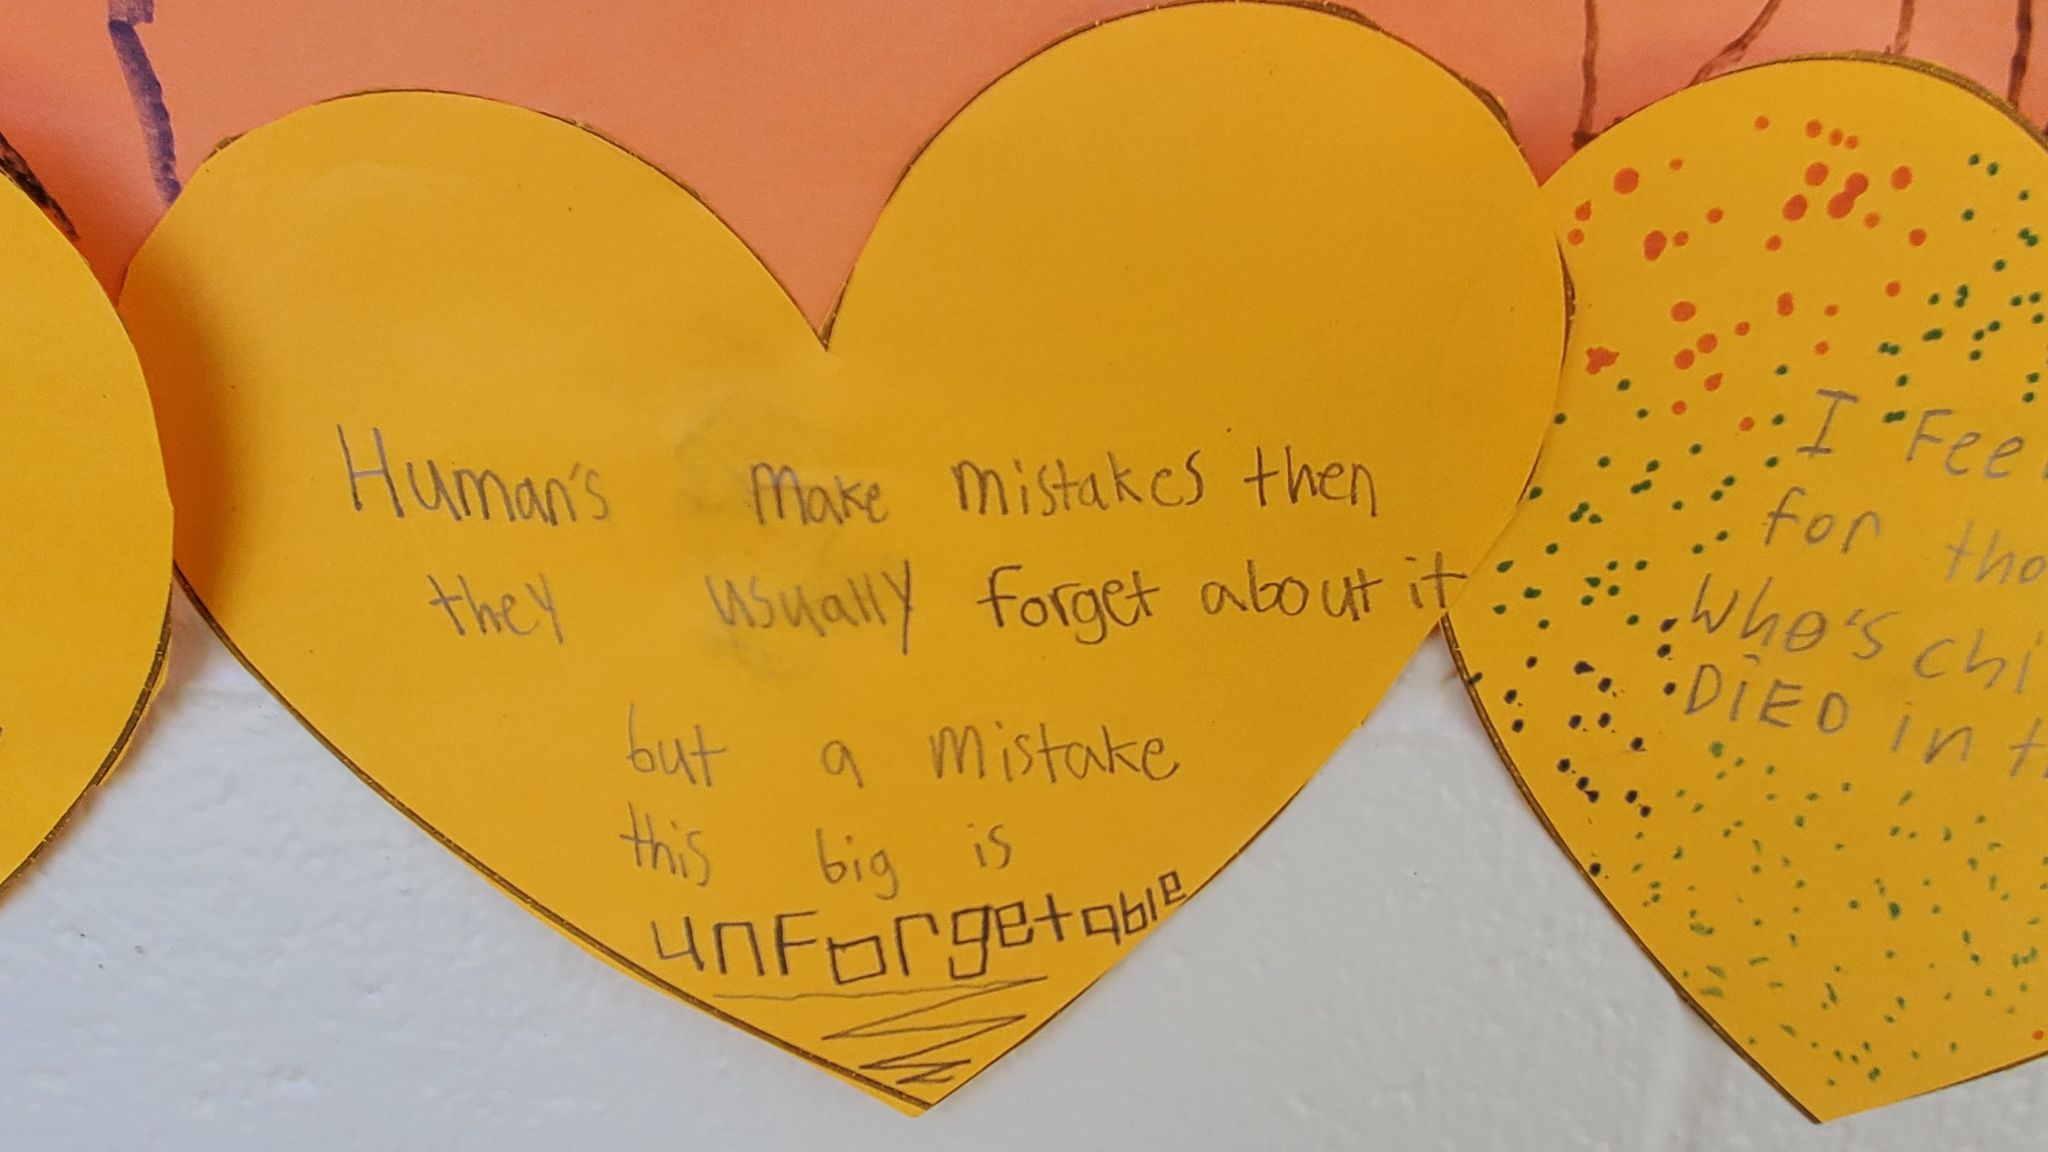 Human's make mistakes then
they usually forget about it
but a mistake
this big is
unforgetable
I Fee
for tho
Who's chi
DiED in t